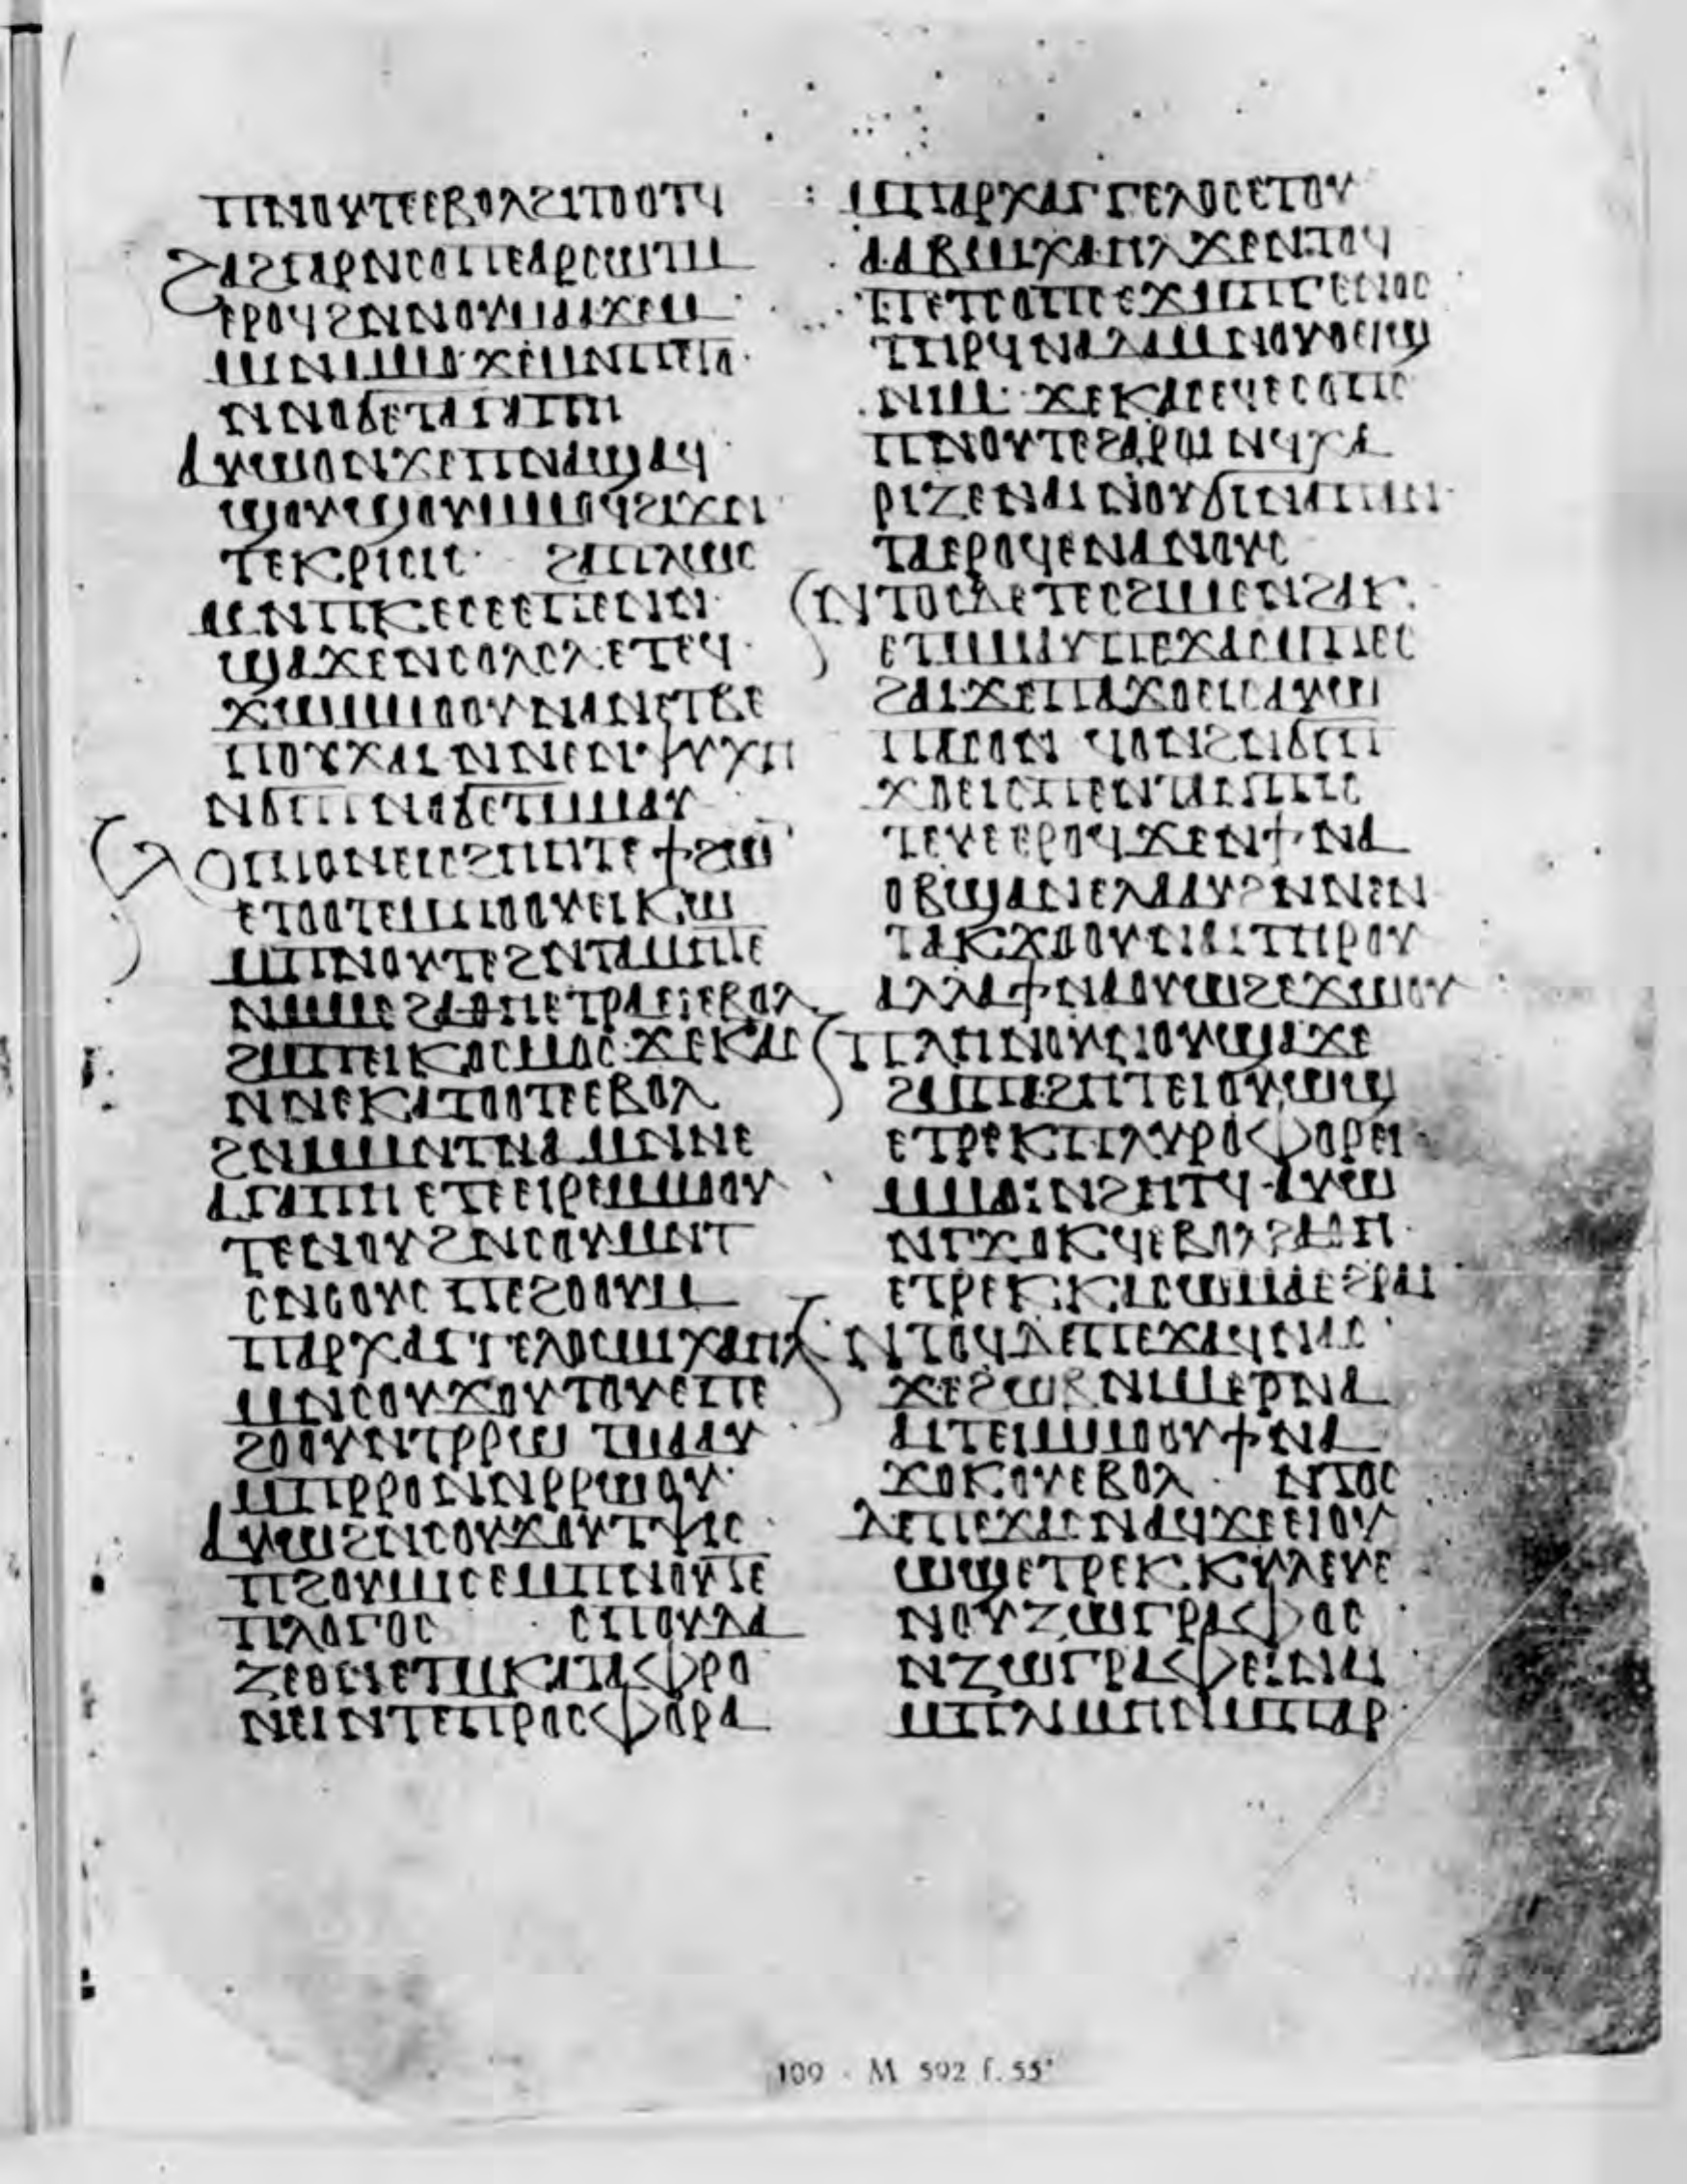 ⲡⲛⲟⲩⲧⲉⲉⲃⲟⲗϩⲓⲧⲟⲟⲧϥ
ϩⲁϩⲅⲁⲣⲛⲥⲟⲡⲉⲁⲣⲥⲱⲧⲙ
ⲉⲣⲟϥϩⲛⲛⲟⲩⲙⲁⲁϫⲉⲙ
ⲙⲓⲛⲙⲙⲟ·ϫⲉⲙⲛⲡⲉⲧⲟ·
ⲛⲛⲟϭⲉⲧⲁⲅⲁⲡⲏ
ⲁⲩⲱⲟⲛϫⲉⲡⲛⲁⲛⲁϣⲁϥ
ϣⲟⲩϣⲟⲩⲙⲙⲟϥϩⲓϫⲛ
ⲧⲉⲕⲣⲓⲥⲓⲥ· ϩⲁⲡⲗⲱⲥ
ⲙⲛⲡⲕⲉⲥⲉⲉⲡⲉⲛⲛ
ϣⲁϫⲉⲛⲥⲟⲗⲥⲗⲉⲧⲉϥ
ϫⲱⲙⲙⲟⲟⲩⲛⲁⲛⲉⲧⲃⲉ
ⲡⲟⲩϫⲁⲓⲛⲛⲉⲛⲯⲩⲭⲏ
ⲛϭⲓⲡⲛⲟϭⲉⲧⲙⲙⲁⲩ
ⲗⲟⲓⲡⲟⲛⲉⲓⲥϩⲏⲏⲧⲉϯϩⲱ
ⲉⲧⲟⲟⲧⲉⲙⲙⲟⲟⲩⲉⲓⲕⲱ
ⲙⲡⲛⲟⲩⲧⲉϩⲛⲧⲁⲙⲏⲧⲉ
ⲛⲙⲙⲉϩⲁⲑⲏⲉⲧⲣⲁⲉⲓⲉⲃⲟⲗ
ϩⲙⲡⲉⲓⲕⲟⲥⲙⲟⲥ·ϫⲉⲕⲁⲥ
ⲛⲛⲉⲕⲁⲧⲟⲟⲧⲉⲉⲃⲟⲗ
ϩⲛⲙⲙⲛⲧⲛⲁⲙⲛⲛⲉ
ⲁⲅⲁⲡⲏⲉⲧⲉⲉⲓⲣⲉⲙⲙⲟⲟⲩ
ⲧⲉⲛⲟⲩϩⲛⲥⲟⲩⲙⲛⲧ
ⲥⲛⲟⲟⲩⲥⲡⲉϩⲟⲟⲩⲙ
ⲡⲁⲣⲭⲁⲅⲅⲉⲗⲟⲥⲙⲓⲭⲁⲏⲗ
ⲙⲛⲥⲟⲩϫⲟⲩⲧⲟⲩⲉⲡⲉ
ϩⲟⲟⲩⲛⲧⲣⲣⲱⲧⲙⲁⲁⲩ
ⲙⲡⲣⲣⲟⲛⲛⲣⲣⲱⲟⲩ·
ⲁⲩⲱϩⲛⲥⲟⲩϫⲟⲩⲧⲯⲓⲥ·
ⲡϩⲟⲩⲙⲓⲥⲉⲙⲡⲛⲟⲩⲧⲉ
ⲡⲗⲟⲅⲟⲥ · ⲥⲡⲟⲩⲇⲁ
ⲍⲉⲟⲛⲉⲧⲙⲕⲁⲧⲁⲫⲣⲟ
ⲛⲉⲓⲛⲧⲉⲡⲣⲟⲥⲫⲟⲣⲁ
ⲙⲡⲁⲣⲭⲁⲅⲅⲉⲗⲟⲥⲉⲧⲟⲩ
ⲁⲁⲃⲙⲓⲭⲁⲏⲗϫⲉⲛⲧⲟϥ
ⲡⲉⲧⲥⲟⲡⲥⲉϫⲙⲡⲅⲉⲛⲟⲥ
ⲧⲏⲣϥⲛⲁⲇⲁⲙⲛⲟⲩⲟⲉⲓϣ
ⲛⲓⲙ·ϫⲉⲕⲁⲥⲉϥⲉⲥⲟⲡⲥ
ⲡⲛⲟⲩⲧⲉϩⲁⲣⲟⲓⲛϥⲭⲁ
ⲣⲓⲍⲉⲛⲁⲓⲛⲟⲩϭⲓⲛⲁⲡⲁⲛ
ⲧⲁⲉⲣⲟϥⲉⲛⲁⲛⲟⲩⲥ
ⲛⲧⲟⲥⲇⲉⲧⲉⲥϩⲓⲙⲉⲛϩⲁⲕ·
ⲉⲧⲙⲙⲁⲩⲡⲉϫⲁⲥⲙⲡⲉⲥ
ϩⲁⲓ·ϫⲉⲡⲁϫⲟⲉⲓⲥⲁⲩⲱ
ⲡⲁⲥⲟⲛ ϥⲟⲛϩⲛϭⲓⲡ
ϫⲟⲉⲓⲥⲡⲉⲛⲧⲁⲓⲡⲓⲥ
ⲧⲉⲩⲉⲉⲣⲟϥϫⲉⲛϯⲛⲁ
ⲟⲃϣⲁⲛⲉⲗⲁⲁⲩϩⲛⲛⲉⲛ
ⲧⲁⲕϫⲟⲟⲩⲛⲁⲓⲧⲏⲣⲟⲩ
ⲁⲗⲗⲁϯⲛⲁⲟⲩⲱϩⲉϫⲱⲟⲩ
ⲡⲗⲏⲛⲟⲩⲛⲟⲩϣⲁϫⲉ
ϩⲙⲡⲁϩⲏⲧⲉⲓⲟⲩⲱϣ
ⲉⲧⲣⲉⲕⲡⲗⲩⲣⲟⲫⲟⲣⲉⲓ
ⲙⲙⲟⲓⲛϩⲏⲧϥ·ⲁⲩⲱ
ⲛⲅϫⲟⲕϥⲉⲃⲟⲗϩⲁⲑⲏ
ⲉⲧⲣⲉⲕⲕⲁⲥⲱⲙⲁⲉϩⲣⲁⲓ
ⲛⲧⲟϥⲇⲉⲡⲉϫⲁϥⲛⲁⲥ
ϫⲉϩⲱⲃⲛⲓⲙⲉⲣⲛⲁ
ⲁⲓⲧⲉⲓⲙⲙⲟⲟⲩϯⲛⲁ
ϫⲟⲕⲟⲩⲉⲃⲟⲗ · ⲛⲧⲟⲥ
ⲇⲉⲡⲉϫⲁⲥⲛⲁϥϫⲉⲉⲓⲟⲩ
ⲱϣⲉⲧⲣⲉⲕⲕⲩⲗⲉⲩⲉ
ⲛⲟⲩⲍⲱⲅⲣⲁⲫⲟⲥ
ⲛⲍⲱⲅⲣⲁⲫⲉⲓⲛⲁⲓ
ⲙⲡⲗⲓⲙⲏⲛⲙⲡⲁⲣ
109 - M 592 f. 55ᵛ